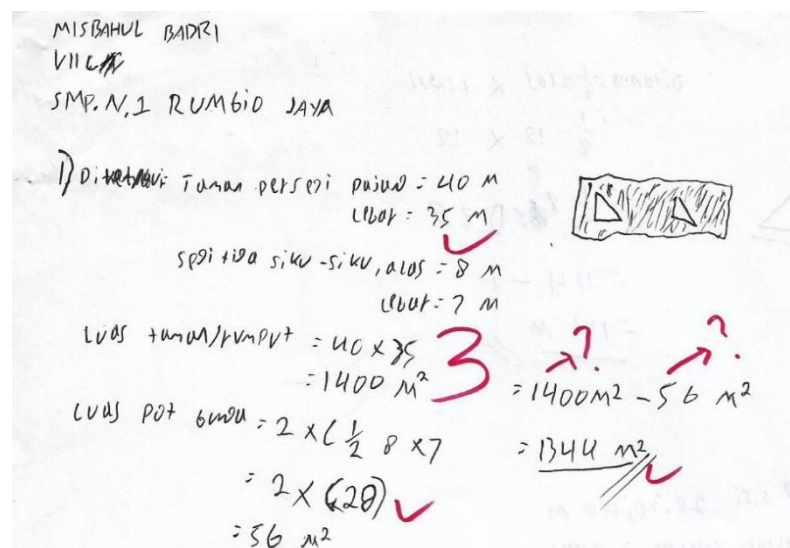 MISBAHUL BADRI
VII
SMP.N.1 RUMBIO JAYA
1) Diketahui: Taman persegi panjang = 40 M
lebar = 35 M
segi tiga siku-siku, alas = 8 M
lebar = 7 M
Luas taman/rumput = 40 x 35
= 1400 M²
3
Luas pot bunga = 2 x ( 1/2 8 x 7
= 2 x (28)
= 56 M²
? ?
= 1400 M² - 56 M²
= 1344 M²